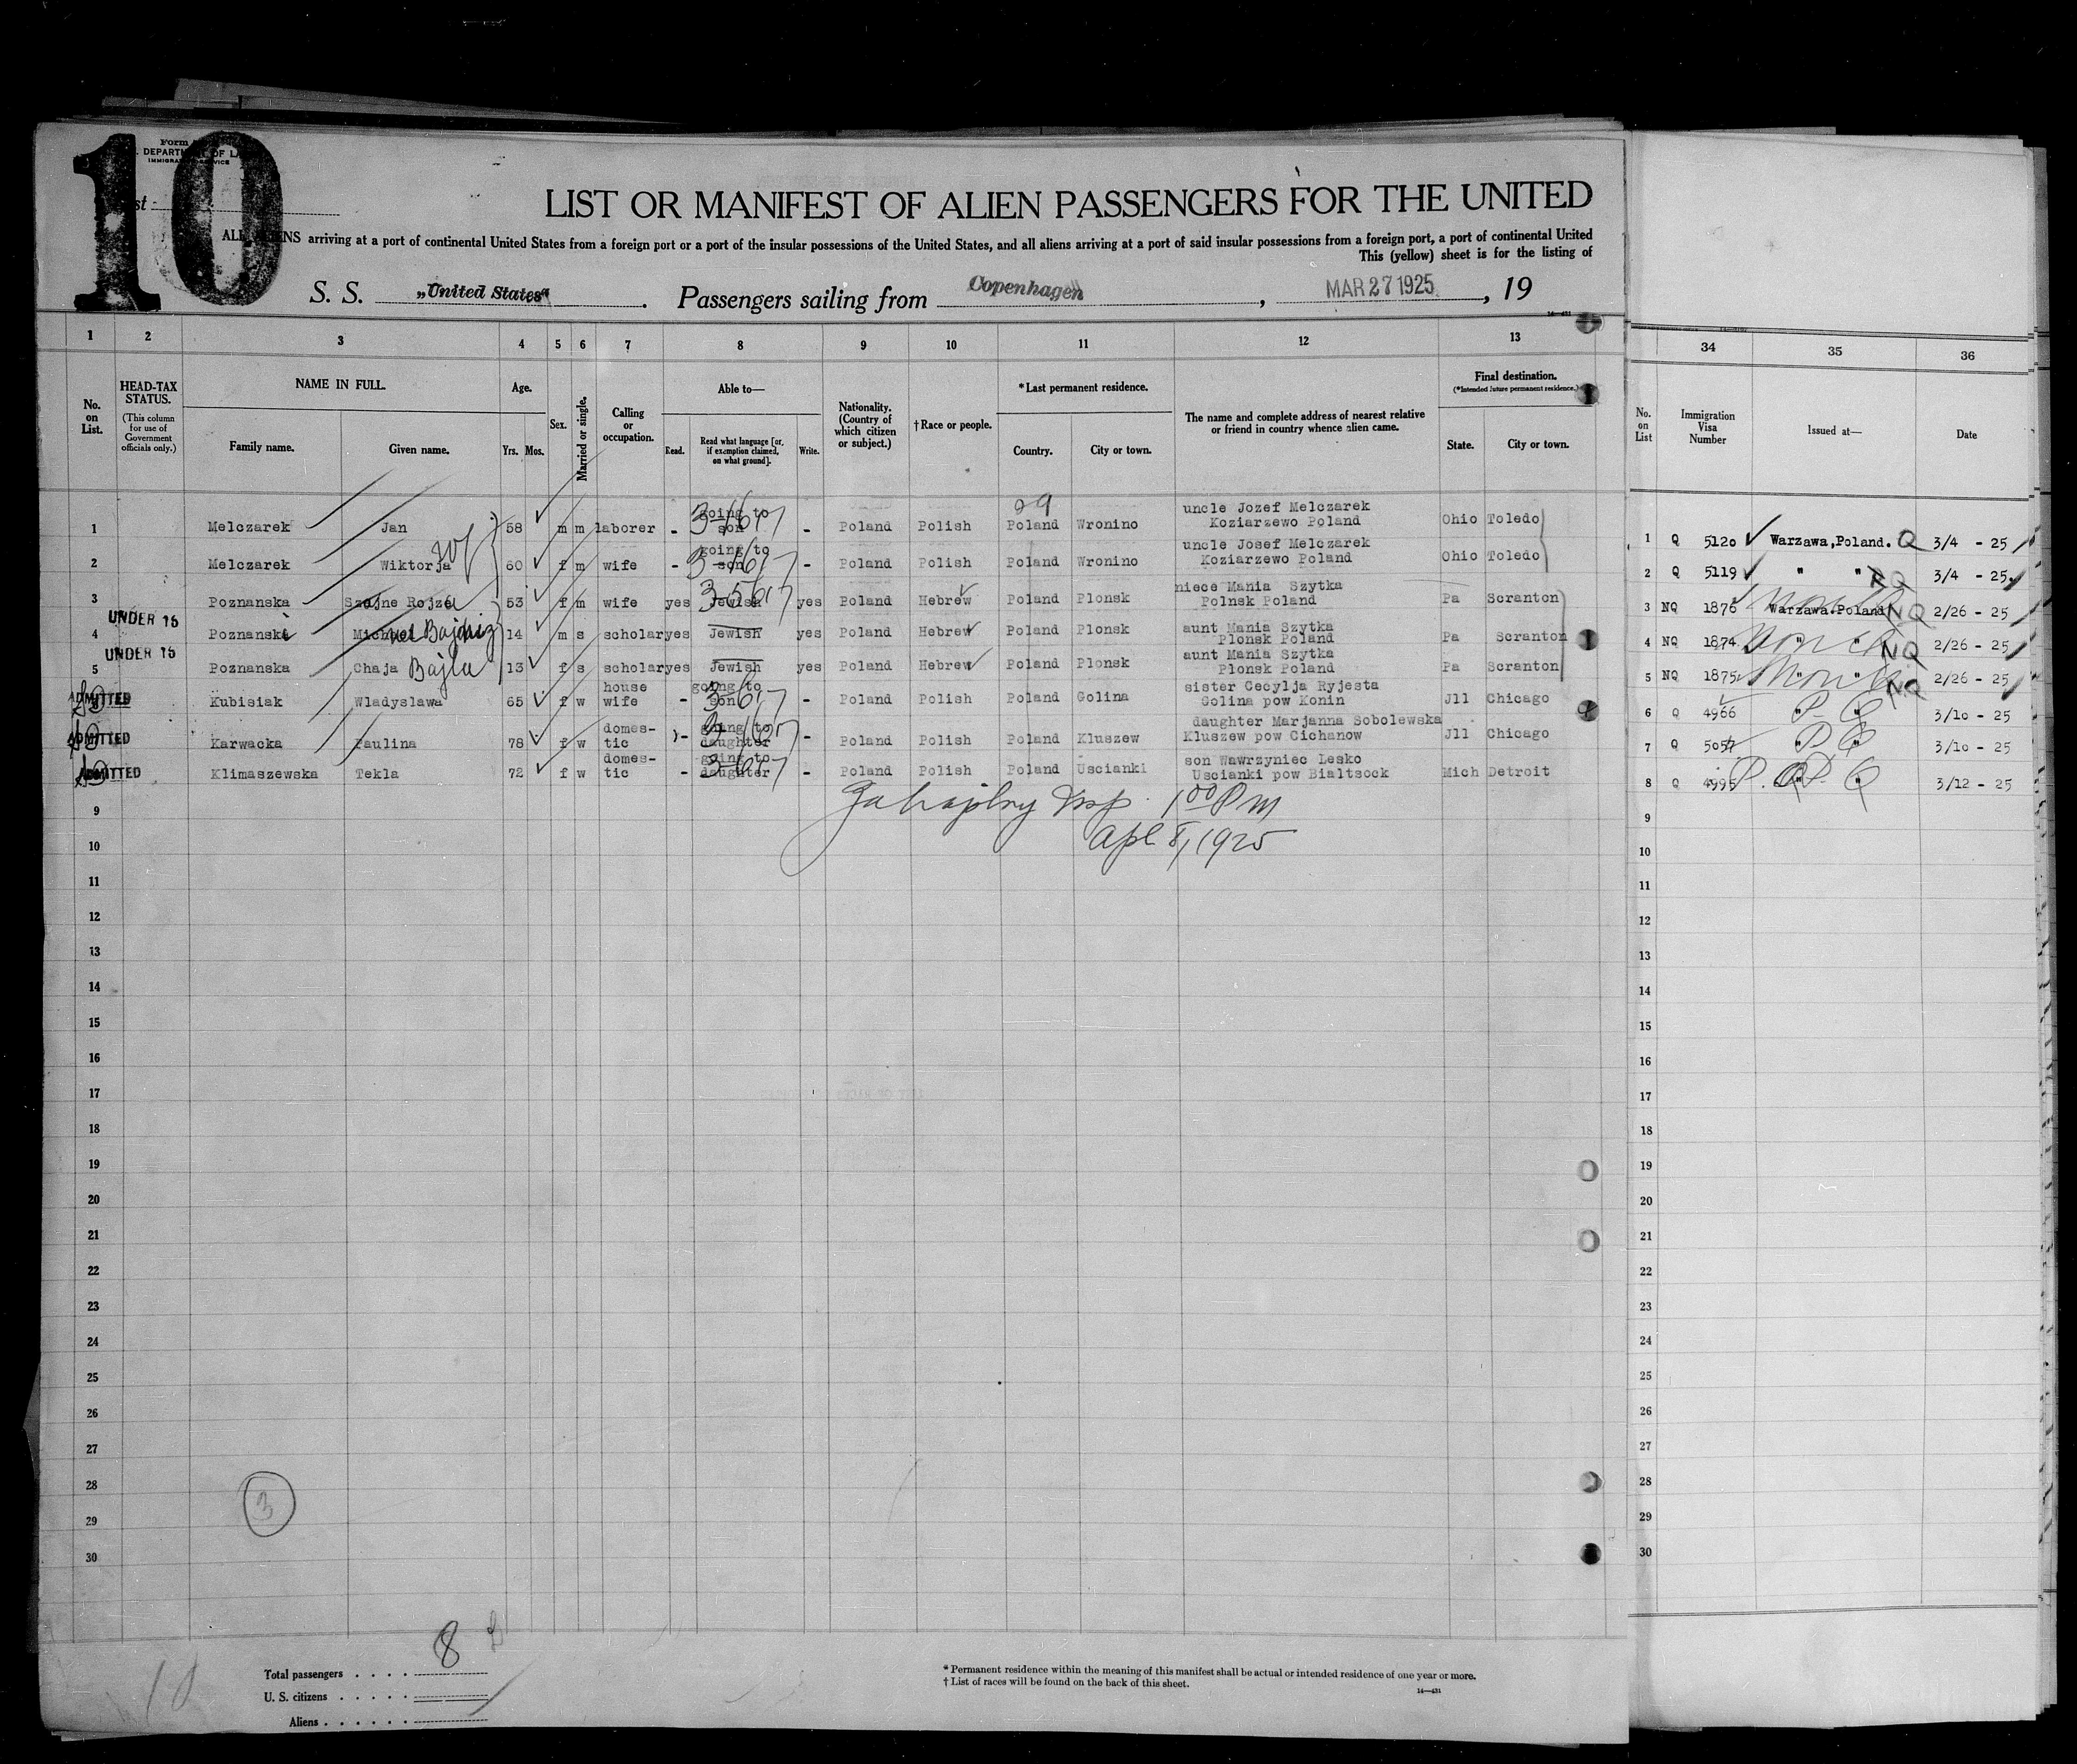 10
Form
DEPARTMENT OF LA
IMMIGRA SERVICE
LIST OR MANIFEST OF ALIEN PASSENGERS FOR THE UNITED
ALL ALIENS arriving at a port of continental United States from a foreign port or a port of the insular possessions of the United States, and all aliens arriving at a port of said insular possessions from a foreign port, a port of continental United
This (yellow) sheet is for the listing of
S. S. „United States“ . Passengers sailing from Copenhagen , MAR 27 1925 , 19
14—431
1 2 3 4 5 6 7 8 9 10 11 12 13 34 35 36
No. on List.
HEAD-TAX STATUS.
(This column for use of Government officials only.)
NAME IN FULL.
Family name. Given name.
Age.
Yrs. Mos.
Sex.
Married or single.
Calling or occupation.
Able to—
Read. Read what language [or, if exemption claimed, on what ground]. Write.
Nationality. (Country of which citizen or subject.)
†Race or people.
*Last permanent residence.
Country. City or town.
The name and complete address of nearest relative or friend in country whence alien came.
Final destination.
(*Intended future permanent residence.)
State. City or town.
No. on List
Immigration Visa Number
Issued at—
Date
29
1 Melczarek Jan 58 m m laborer - going to son - Poland Polish Poland Wronino uncle Jozef Melczarek Koziarzewo Poland Ohio Toledo
2 Melczarek Wiktorja 60 f m wife - going to son - Poland Polish Poland Wronino uncle Josef Melczarek Koziarzewo Poland Ohio Toledo
3 Poznanska Szajne Rojza 53 f m wife yes Jewish yes Poland Hebrew Poland Plonsk niece Mania Szytka Polnsk Poland Pa Scranton
UNDER 16
4 Poznanski 14 m s scholar yes Jewish yes Poland Hebrew Poland Plonsk aunt Mania Szytka Plonsk Poland Pa Scranton
UNDER 16
5 Poznanska Chaja Bajla 13 f s scholar yes Jewish yes Poland Hebrew Poland Plonsk aunt Mania Szytka Plonsk Poland Pa Scranton
ADMITTED Kubisiak Wladyslawa 65 f w house wife - going to son - Poland Polish Poland Golina sister Cecylja Ryjesta Golina pow Konin Jll Chicago
ADMITTED Karwacka Paulina 78 f w domes- tic - going to daughter - Poland Polish Poland Kluszew daughter Marjanna Sobolewska Kluszew pow Cichanow Jll Chicago
ADMITTED Klimaszewska Tekla 72 f w domes- tic - going to daughter - Poland Polish Poland Uscianki son Wawrzyniec Lesko Uscianki pow Bialtsock Mich Detroit
1 Q 5120 Warzawa,Poland. Q 3/4 - 25
2 Q 5119 " " Q 3/4 - 25
3 NQ 1876 Warzawa.Poland NQ 2/26 - 25
4 NQ 1874 " " NQ 2/26 - 25
5 NQ 1875 " " NQ 2/26 - 25
6 Q 4966 " " 3/10 - 25
7 Q 5057 " " 3/10 - 25
8 Q 4995 " " 3/12 - 25
Insp. 1 00 P m
Apl 8, 1925
9
10
11
12
13
14
15
16
17
18
19
20
21
22
23
24
25
26
27
28
29
30
9
10
11
12
13
14
15
16
17
18
19
20
21
22
23
24
25
26
27
28
29
30
3
10
Total passengers . . . . 8
U. S. citizens . . . . .
Aliens . . . . . .
* Permanent residence within the meaning of this manifest shall be actual or intended residence of one year or more.
† List of races will be found on the back of this sheet.
14—431